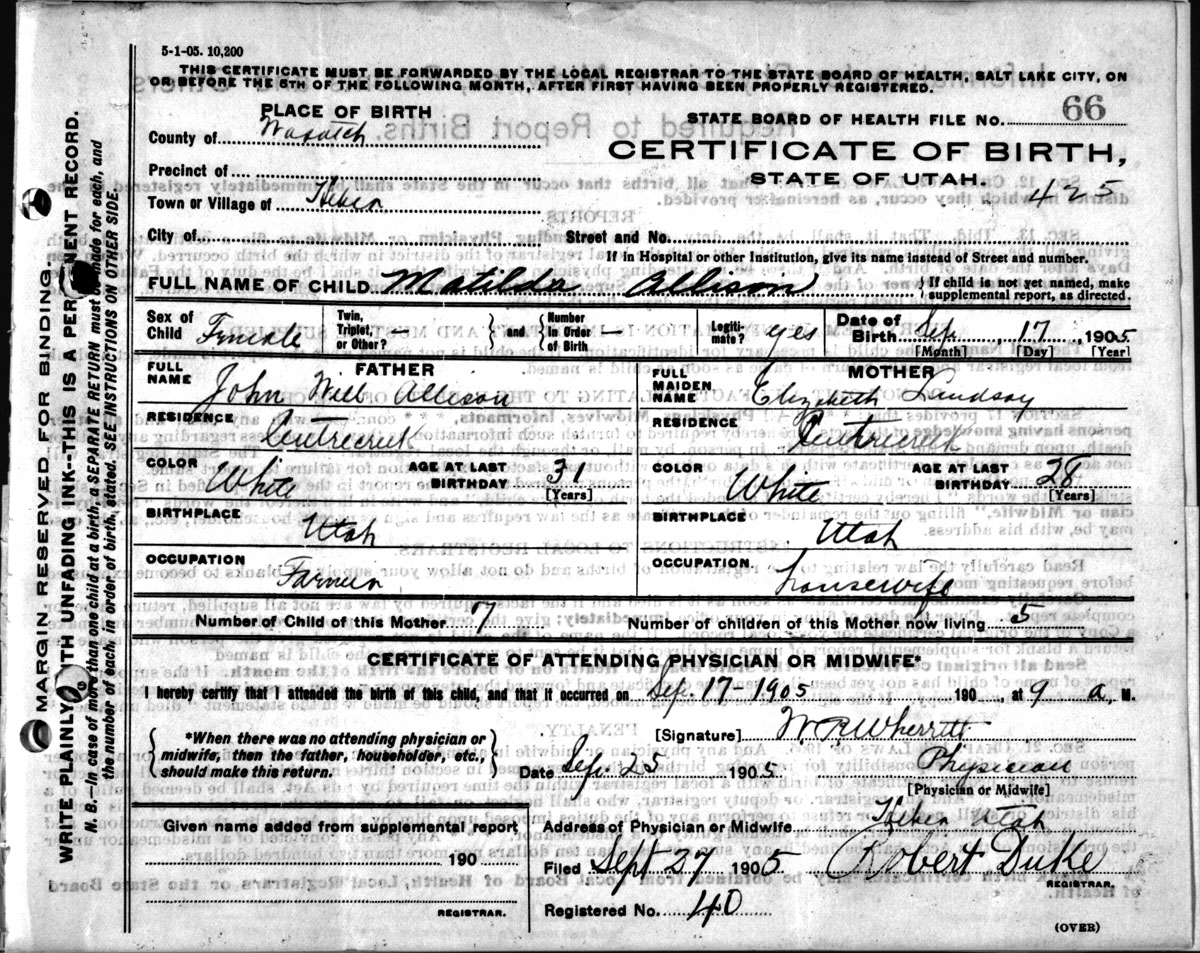 5-1-05. 10,200
THIS CERTIFICATE MUST BE FORWARDED BY THE LOCAL REGISTRAR TO THE STATE BOARD OF HEALTH, SALT LAKE CITY, ON
OR BEFORE THE 5TH OF THE FOLLOWING MONTH, AFTER FIRST HAVING BEEN PROPERLY REGISTERED.
PLACE OF BIRTH
County of Wasatch
STATE BOARD OF HEALTH FILE No. 66
CERTIFICATE OF BIRTH,
Precinct of
STATE OF UTAH.
Town or Village of Heber
425
City of Street and No.
If in Hospital or other Institution, give its name instead of Street and number.
FULL NAME OF CHILD Matilda Allison { If child is not yet named, make
supplemental report, as directed.
Sex of Child Female Twin, Triplet, or Other? — and Number In Order of Birth — Legiti- mate? yes Date of Birth Sep. 17, 1905
[Month] [Day] [Year]
FATHER
FULL NAME John Will Allison
MOTHER
FULL MAIDEN NAME Elizabeth Lindsay
RESIDENCE Centrecreek
RESIDENCE Centrecreek
COLOR White AGE AT LAST BIRTHDAY 31 [Years]
COLOR White AGE AT LAST BIRTHDAY 28 [Years]
BIRTHPLACE Utah
BIRTHPLACE Utah
OCCUPATION Farmer
OCCUPATION. housewife
Number of Child of this Mother 7 Number of children of this Mother now living 5
CERTIFICATE OF ATTENDING PHYSICIAN OR MIDWIFE*
I hereby certify that I attended the birth of this child, and that it occurred on Sep. 17-1905 190 , at 9 a M.
*When there was no attending physician or
midwife, then the father, householder, etc.,
should make this return.
[Signature] W R Wherritt
Date Sep. 25 1905 Physician
[Physician or Midwife]
Given name added from supplemental report
190
REGISTRAR.
Address of Physician or Midwife Heber Utah
Filed Sept 27 1905 Robert Duke
REGISTRAR.
Registered No. 40
(OVER)
MARGIN RESERVED FOR BINDING.
WRITE PLAINLY WITH UNFADING INK--THIS IS A PERMANENT RECORD.
N. B.—In case of more than one child at a birth, a SEPARATE RETURN must be made for each, and
the number of each, in order of birth, stated. SEE INSTRUCTIONS ON OTHER SIDE.